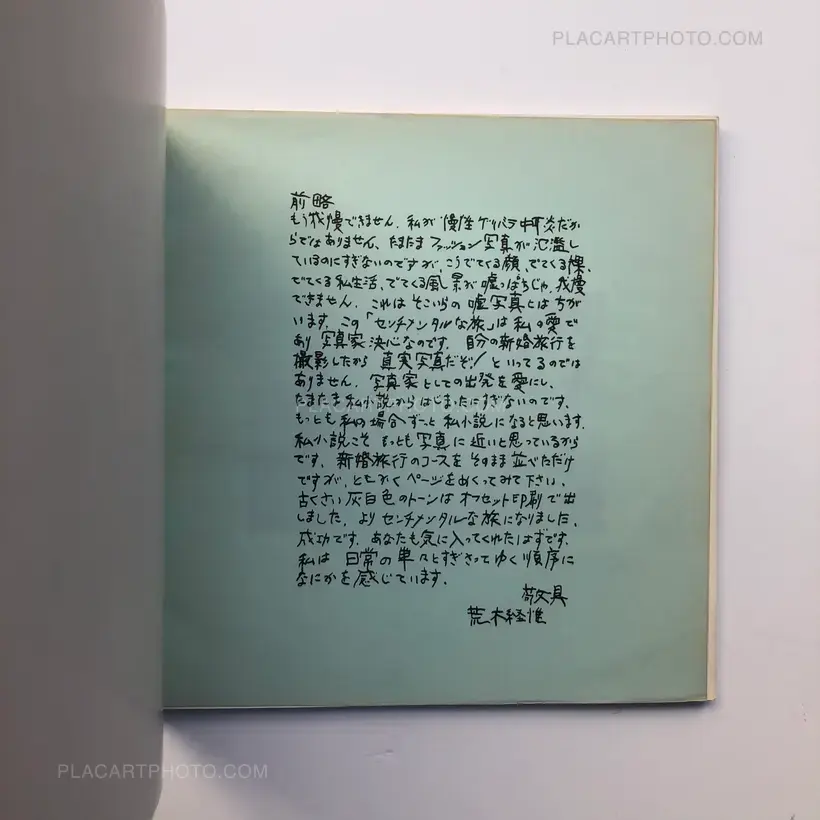 PLACARTPHOTO.COM
前略
もう我慢できません。私が慢性ゲリバラ中耳炎だか
らではありません。たまたまファッション写真が氾濫し
ているのにすぎないのですが、こうでてくる顔、でてくる裸、
でてくる私生活、でてくる風景が嘘っぱちじゃ、我慢
できません。これはそこいらの嘘写真とはちが
います。この「センチメンタルな旅」は私の愛で
あり写真家決心なのです。自分の新婚旅行を
撮影したから真実写真だぞ!といってるのでは
ありません。写真家としての出発を愛にし、
たまたま私小説からはじまったにすぎないのです。
もっとも私の場合ずーっと私小説になると思います。
私小説こそもっとも写真に近いと思っているから
です。新婚旅行のコースをそのまま並べただけ
ですが、ともかくページをめくってみて下さい。
古くさい灰白色のトーンはオフセット印刷で出
しました。よりセンチメンタルな旅になりました。
成功です。あなたも気に入ってくれたはずです。
私は日常の単々とすぎさってゆく順序に
なにかを感じています。
敬具
荒木経惟
PLACARTPHOTO.COM
PLACARTPHOTO.COM